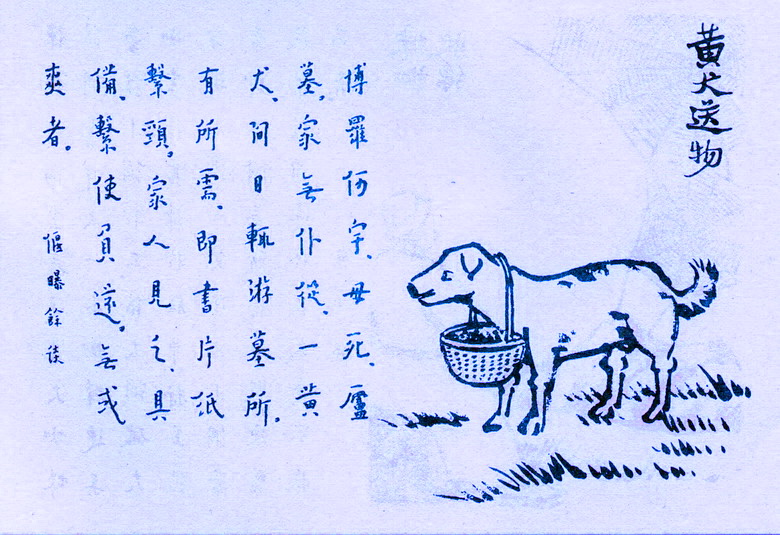 黄犬送物
博羅何宇、母死、廬
墓。家無仆從、一黄
犬、間日輒游墓所。
有所需、即書片紙
繫頸。家人見之、具
備、繫使負還。無或
爽者。
偃曝餘談